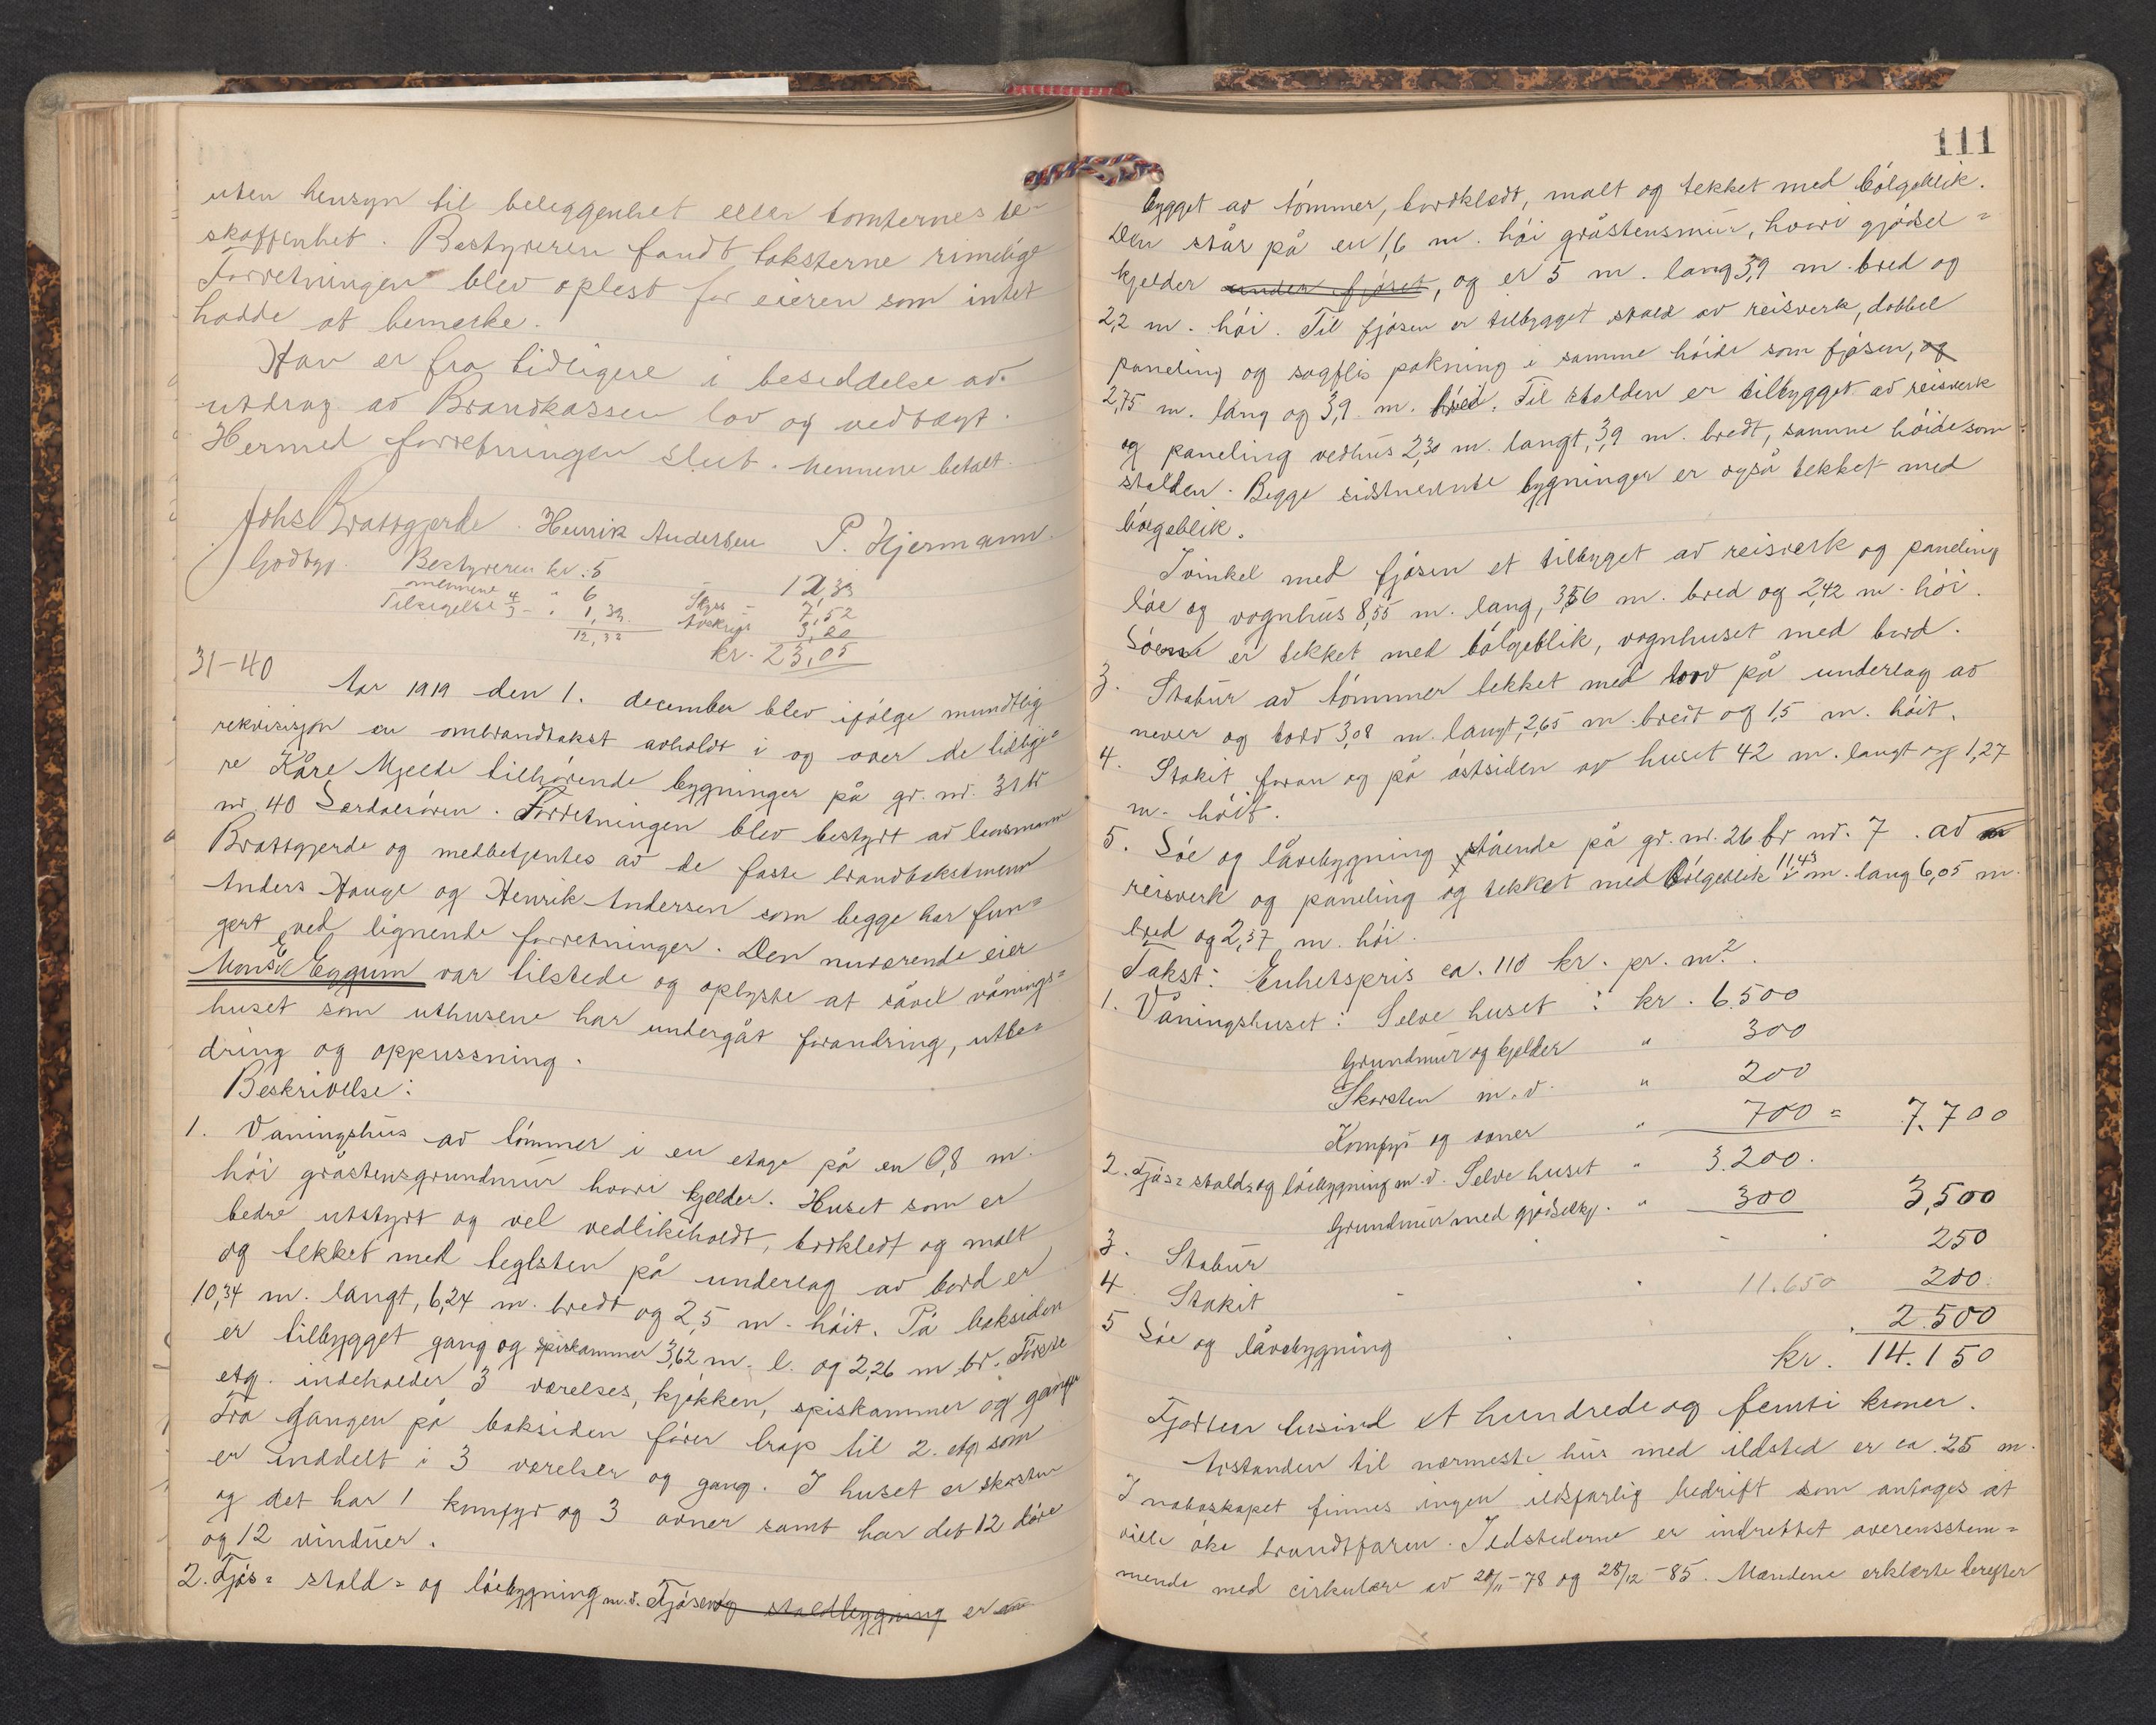 uten hensyn til beleggenhet eller tomternes be-
skaffenhet. Bestyreren fandt taksterne rimelige
Forretningen blev oplest for eieren som intet
hadde at bemerke.
Han er fra tidligere i besiddelse av
utdrag av Brandkassen lov og vedtægt.
Hermed forretningen slut. Mennene betalt.
Johs Brattgjerde. Henrik Andersen P. Hjermann.
Godtgj. Bestyreren kr. 5
mennene " 6 12,33
Tilsigelse 4/3 - " 1,33 Skyss - 7,52
12,33 Avskrift 3,20
kr. 23,05
31-40 Aar 1919 den 1. december blev ifølge mundtlig
rekvisisjon en ombrandtakst avholdt i og over de tidlige=
re Kåre Mjelde tilhørende bygninger på gr. nr. 31 br
nr 40 Lærdalsøren. Forretningen blev bestyrt av lensmann
Brattgjerde og medbetjentes av de faste brandtakstmenn
Anders Hauge og Henrik Andersen som begge har fun=
gert ved lignende forretninger. Den nuværende eier
Mons E Eggum var tilstede og oplyste at såvel vånings=
huset som uthusene har undergåt forandring, utbe=
dring og oppussning.
Beskrivelse:
1. Våningshus av tømmer i en etage på en 0,8 m.
høi gråstensgrundmur hvori kjelder. Huset som er
bedre utstyrt og vel vedlikeholdt, bordkledt og malt
og tekket med teglsten på underlag av bord er
10,34 m. langt, 6,24 m. bredt og 2,5 m. høit. På baksiden
er tilbygget gang og spiskammer 3,62 m. l. og 2,26 m br. Første
etg. indeholder 3 værelses, kjøkken, spiskammer og ganger
Fra gangen på baksiden fører trap til 2. etg som
er inddelt i 3 værelser og gang. I huset er skorsten
og det har 1 komfyr og 3 ovner samt har det 12 døre
og 12 vinduer.
2. Fjøs= stald= og løebygning m.v. Fjøsen og staldbygning er en
111
bygget av tømmer, bordklædt, malt og tekket med bølgeblik.
Den står på en 1,6 m. høi gråstensmur, hvori gjødsel=
kjelder under fjøset, og er 5 m. lang 3,9 m. bred og
2,2 m. høi. Til fjøsen er tilbygget stald av reisverk, dobbel
paneling og sagflis pakning i samme høide som fjøsen, og
2,75 m. lang og 3,9 m. bred. Til stalden er tilbygget av reisverk
og paneling vedhus 2,30 m. langt, 3,9 m. bredt, samme høide som
stalden. Begge sidstnevnte bygninger er også tekket med
bølgeblik.
I vinkel med fjøsen et tilbyget av reisverk og paneling
løe og vognhus 8,55 m. lang, 3,56 m. bred og 2,42 m. høi.
Løen er tekket med bølgeblik, vognhuset med bord.
3. Stabur av tømmer tekket med torv på underlag av
never og bord 3,08 m. langt, 2,65 m. bredt og 1,5 m. høit.
4. Stakit foran og på østsiden av huset 42 m. langt og 1,27
m. høit.
5. Løe og låvebygning stående på gr. nr. 26 br nr. 7. av
reisverk og paneling og tekket med bølgeblik 11,43 m. lang 6,05 m.
bred og 2,37 m. høi.
Takst: Enhetspris ca. 110 kr. pr. m².
1. Våningshuset: Selve huset : kr. 6.500
Grundmur og kjelder " 300
Skorsten m.v. " 200
Komfyr og ovner " 700 = 7.700
2. Fjøs= stald= og løebygning m.v. Selve huset " 3.200.
Grundmur med gjødselkj. " 300 3,500
3. Stabur 250
4 Stakit 11.650 200.
5 Løe og låvebygning 2.500
kr. 14.150
Fjorten tusind et hundrede og femti kroner.
Avstanden til nærmeste hus med ildsted er ca. 25 m.
I naboskapet finnes ingen ildsfarlig bedrift som antages at
ville øke brandfaren. Ildstederne er indrettet overensstem=
mende med cirkulære av 28/11-78 og 28/12-85. Mændene erklærte derefter